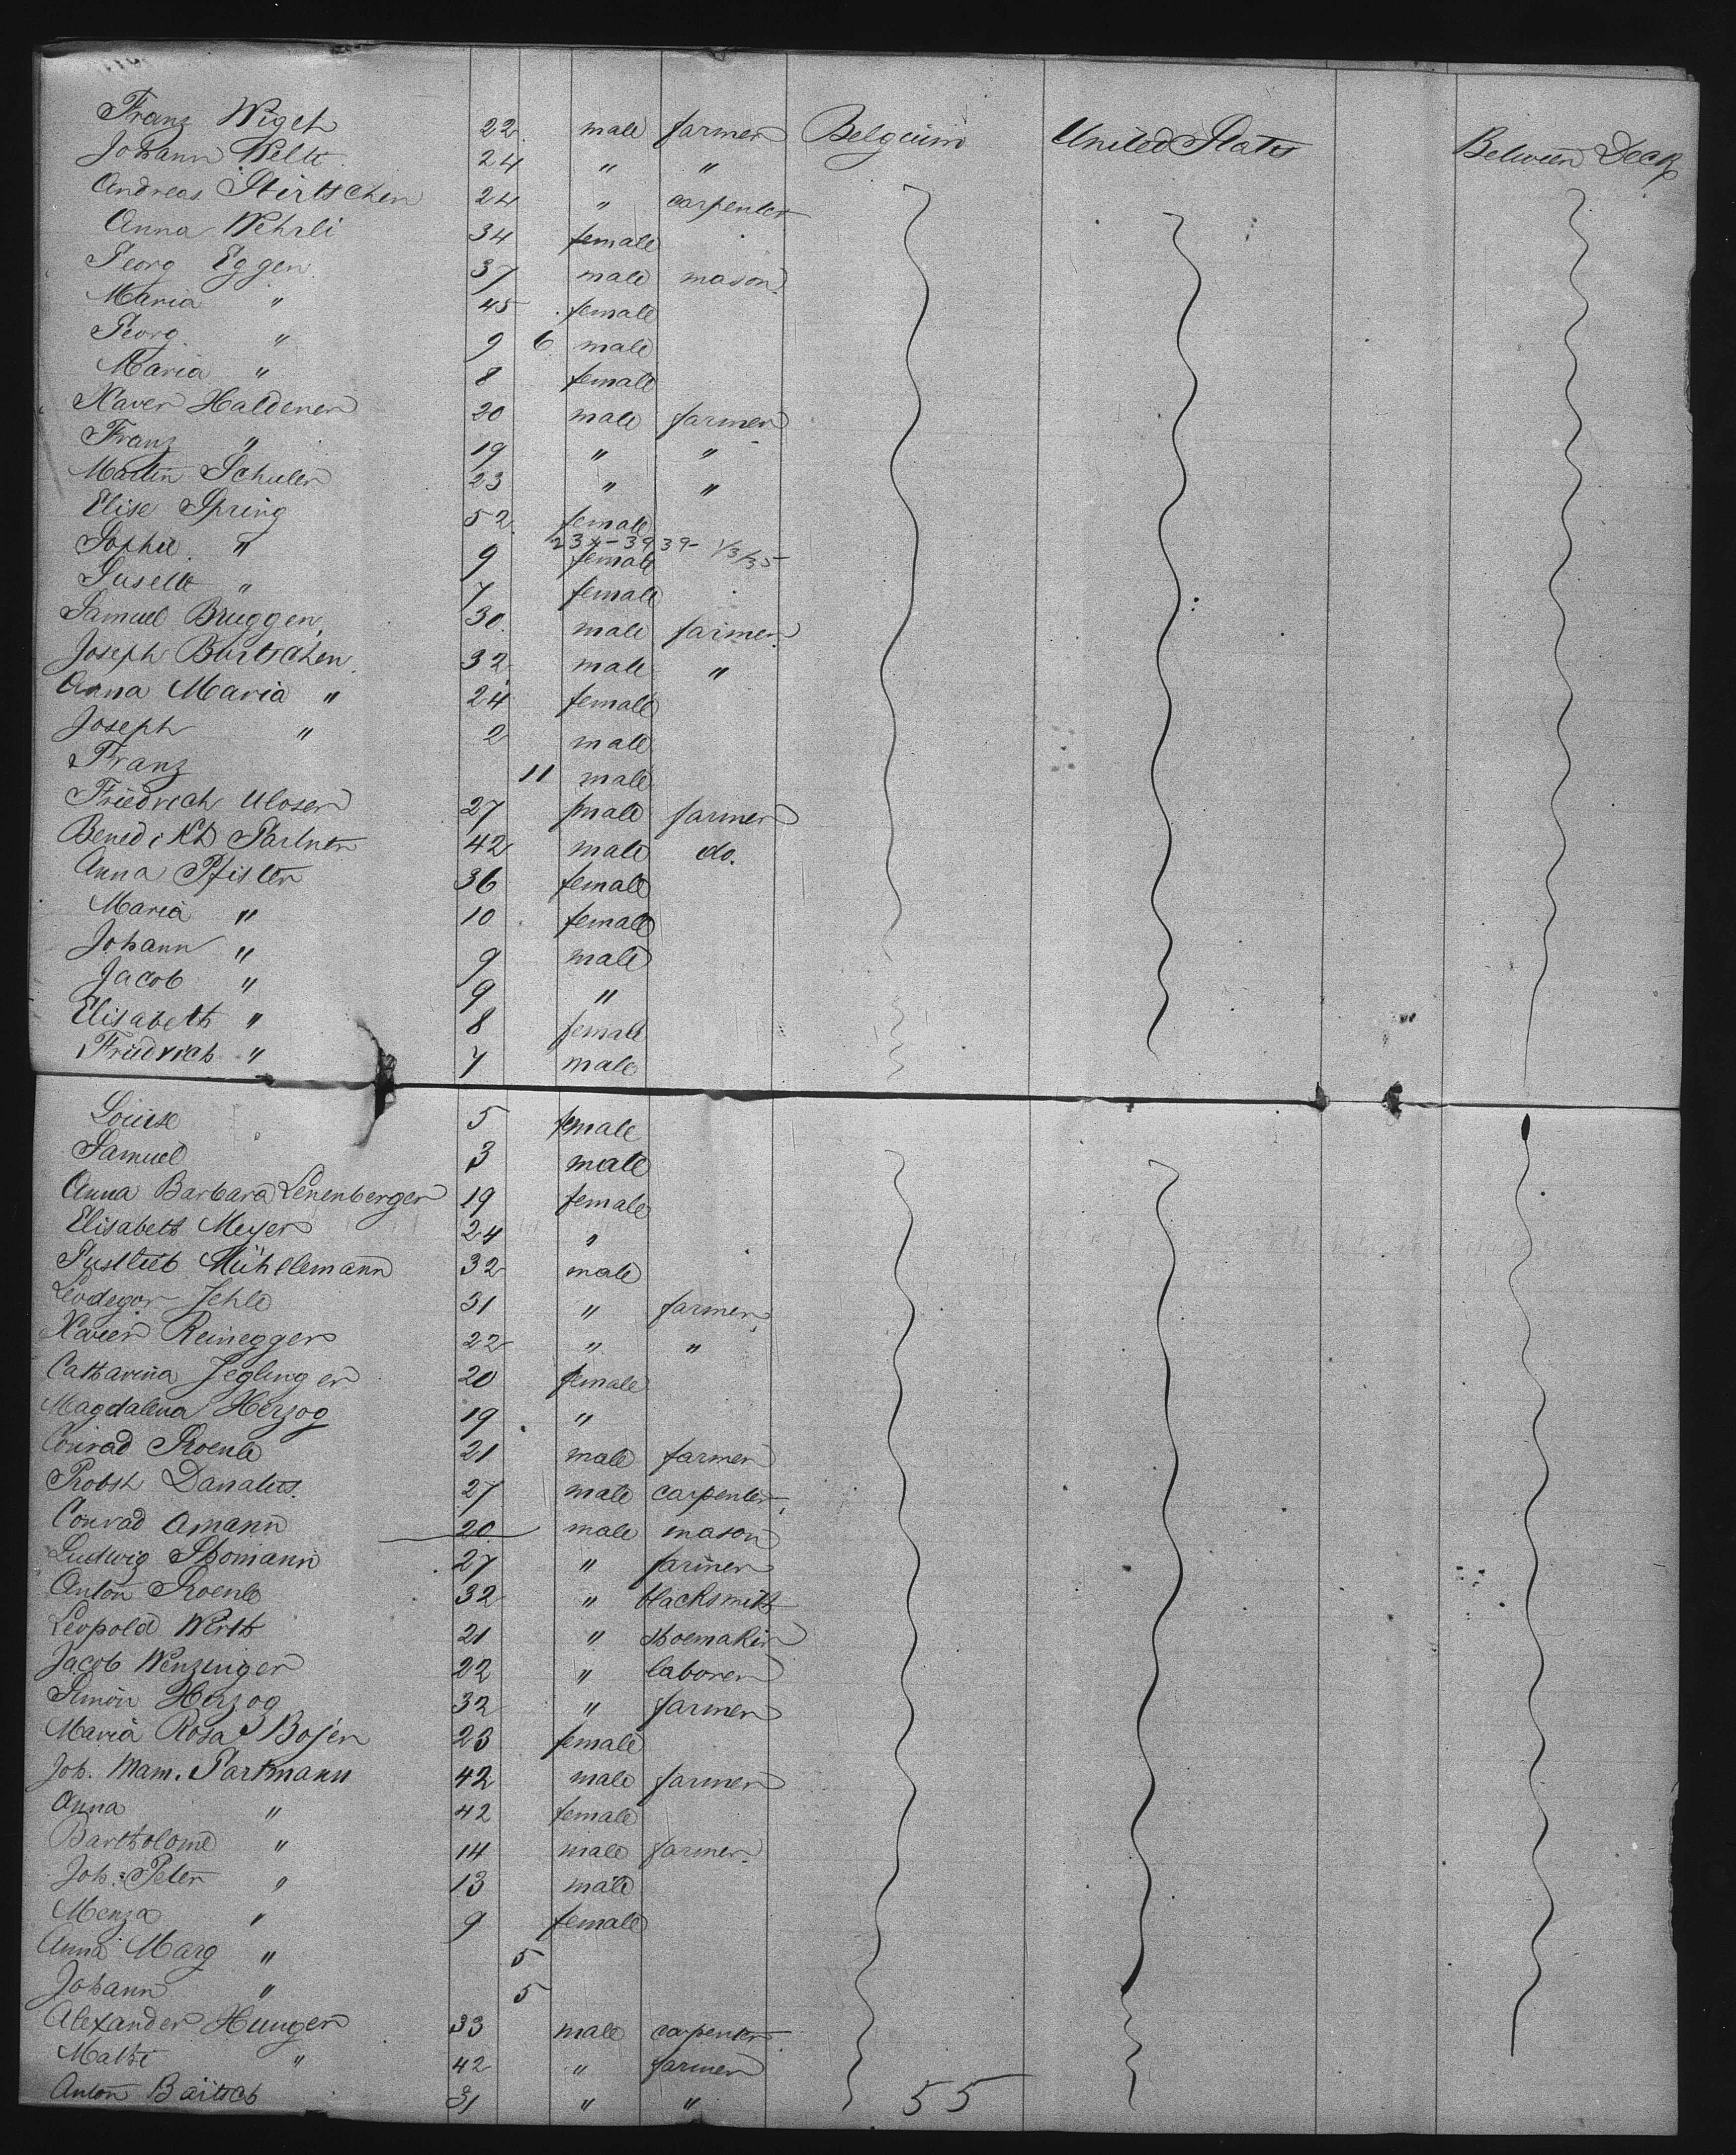 Franz Wigct 22 male farmer Belgium United States Between Deck
Johann Welti 24 " "
Andreas Stirtschen 24 " carpenter
Anna Wehrli 34 female
Georg Eggen 37 male mason
Maria " 45 female
Georg " 9 6 male
Maria " 8 female
Xaver Haldener 20 male farmer
Franz " 19 " "
Martin Schuler 23 " "
Elise Spring 52 female
234-3939- 1/3/35
Sophie " 9 female
Susette " 7 female
Samuel Bruggen 30 male farmer
Joseph Burtschen 32 male "
Anna Maria " 24 female
Joseph " 2 male
Franz 11 male
Friedrich Moser 27 male farmer
Benedikt Gartner 42 male do.
Anna Pfister 36 female
Maria " 10 female
Johann " 9 male
Jacob " 9 "
Elisabeth " 8 female
Friedrich " 7 male
Louise 5 female
Samuel 3 male
Anna Barbara Lenenberger 19 female
Elisabeth Meyer 24 "
Gustlieb Mühllemann 32 male
Leodegar Jehle 31 " farmer
Xavier Reinegger 22 " "
Catharina Jeglinger 20 female
Magdalena Herzog 19 "
Conrad Troenle 21 male farmer
Probst Danatus 27 male carpenter
Conrad Amann 20 male mason
Ludwig Thomann 27 " farmer
Anton Troenle 32 " blacksmith
Leopold Werth 21 " shoemaker
Jacob Wenzinger 22 " laborer
Simon Herzog 32 " farmer
Maria Rosa Boser 23 female
Joh. Mam. Partmann 42 male farmer
Anna " 42 female
Bartholome " 14 male farmer
Joh. Peter " 13 male
Menza " 9 female
Anna Marg " 5
Johann " 5
Alexander Hunger 33 male carpenter
Mathi " 42 " farmer
Anton Baitsch 31 " "
55